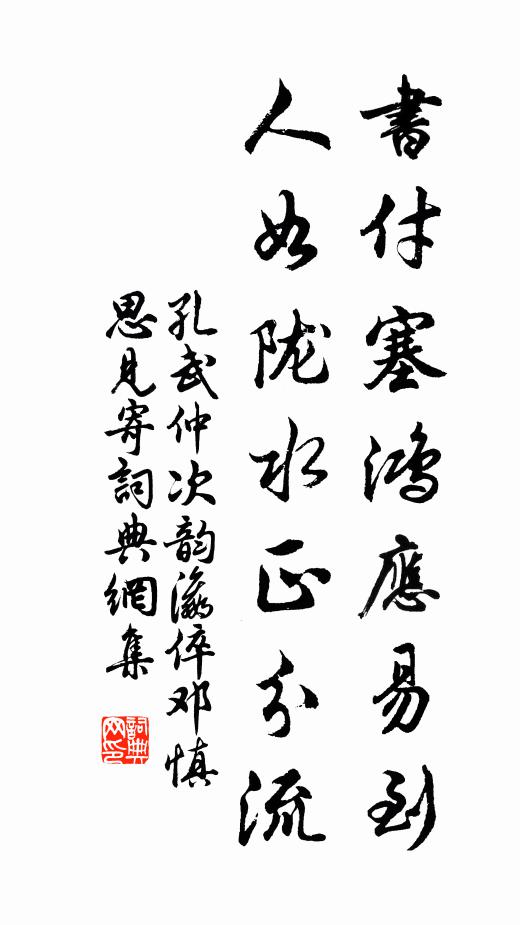 書付塞鴻應易到
人如陇水正分流
孔武仲次韵瀛倅邓慎
思見寄詞典網集
詞典網印